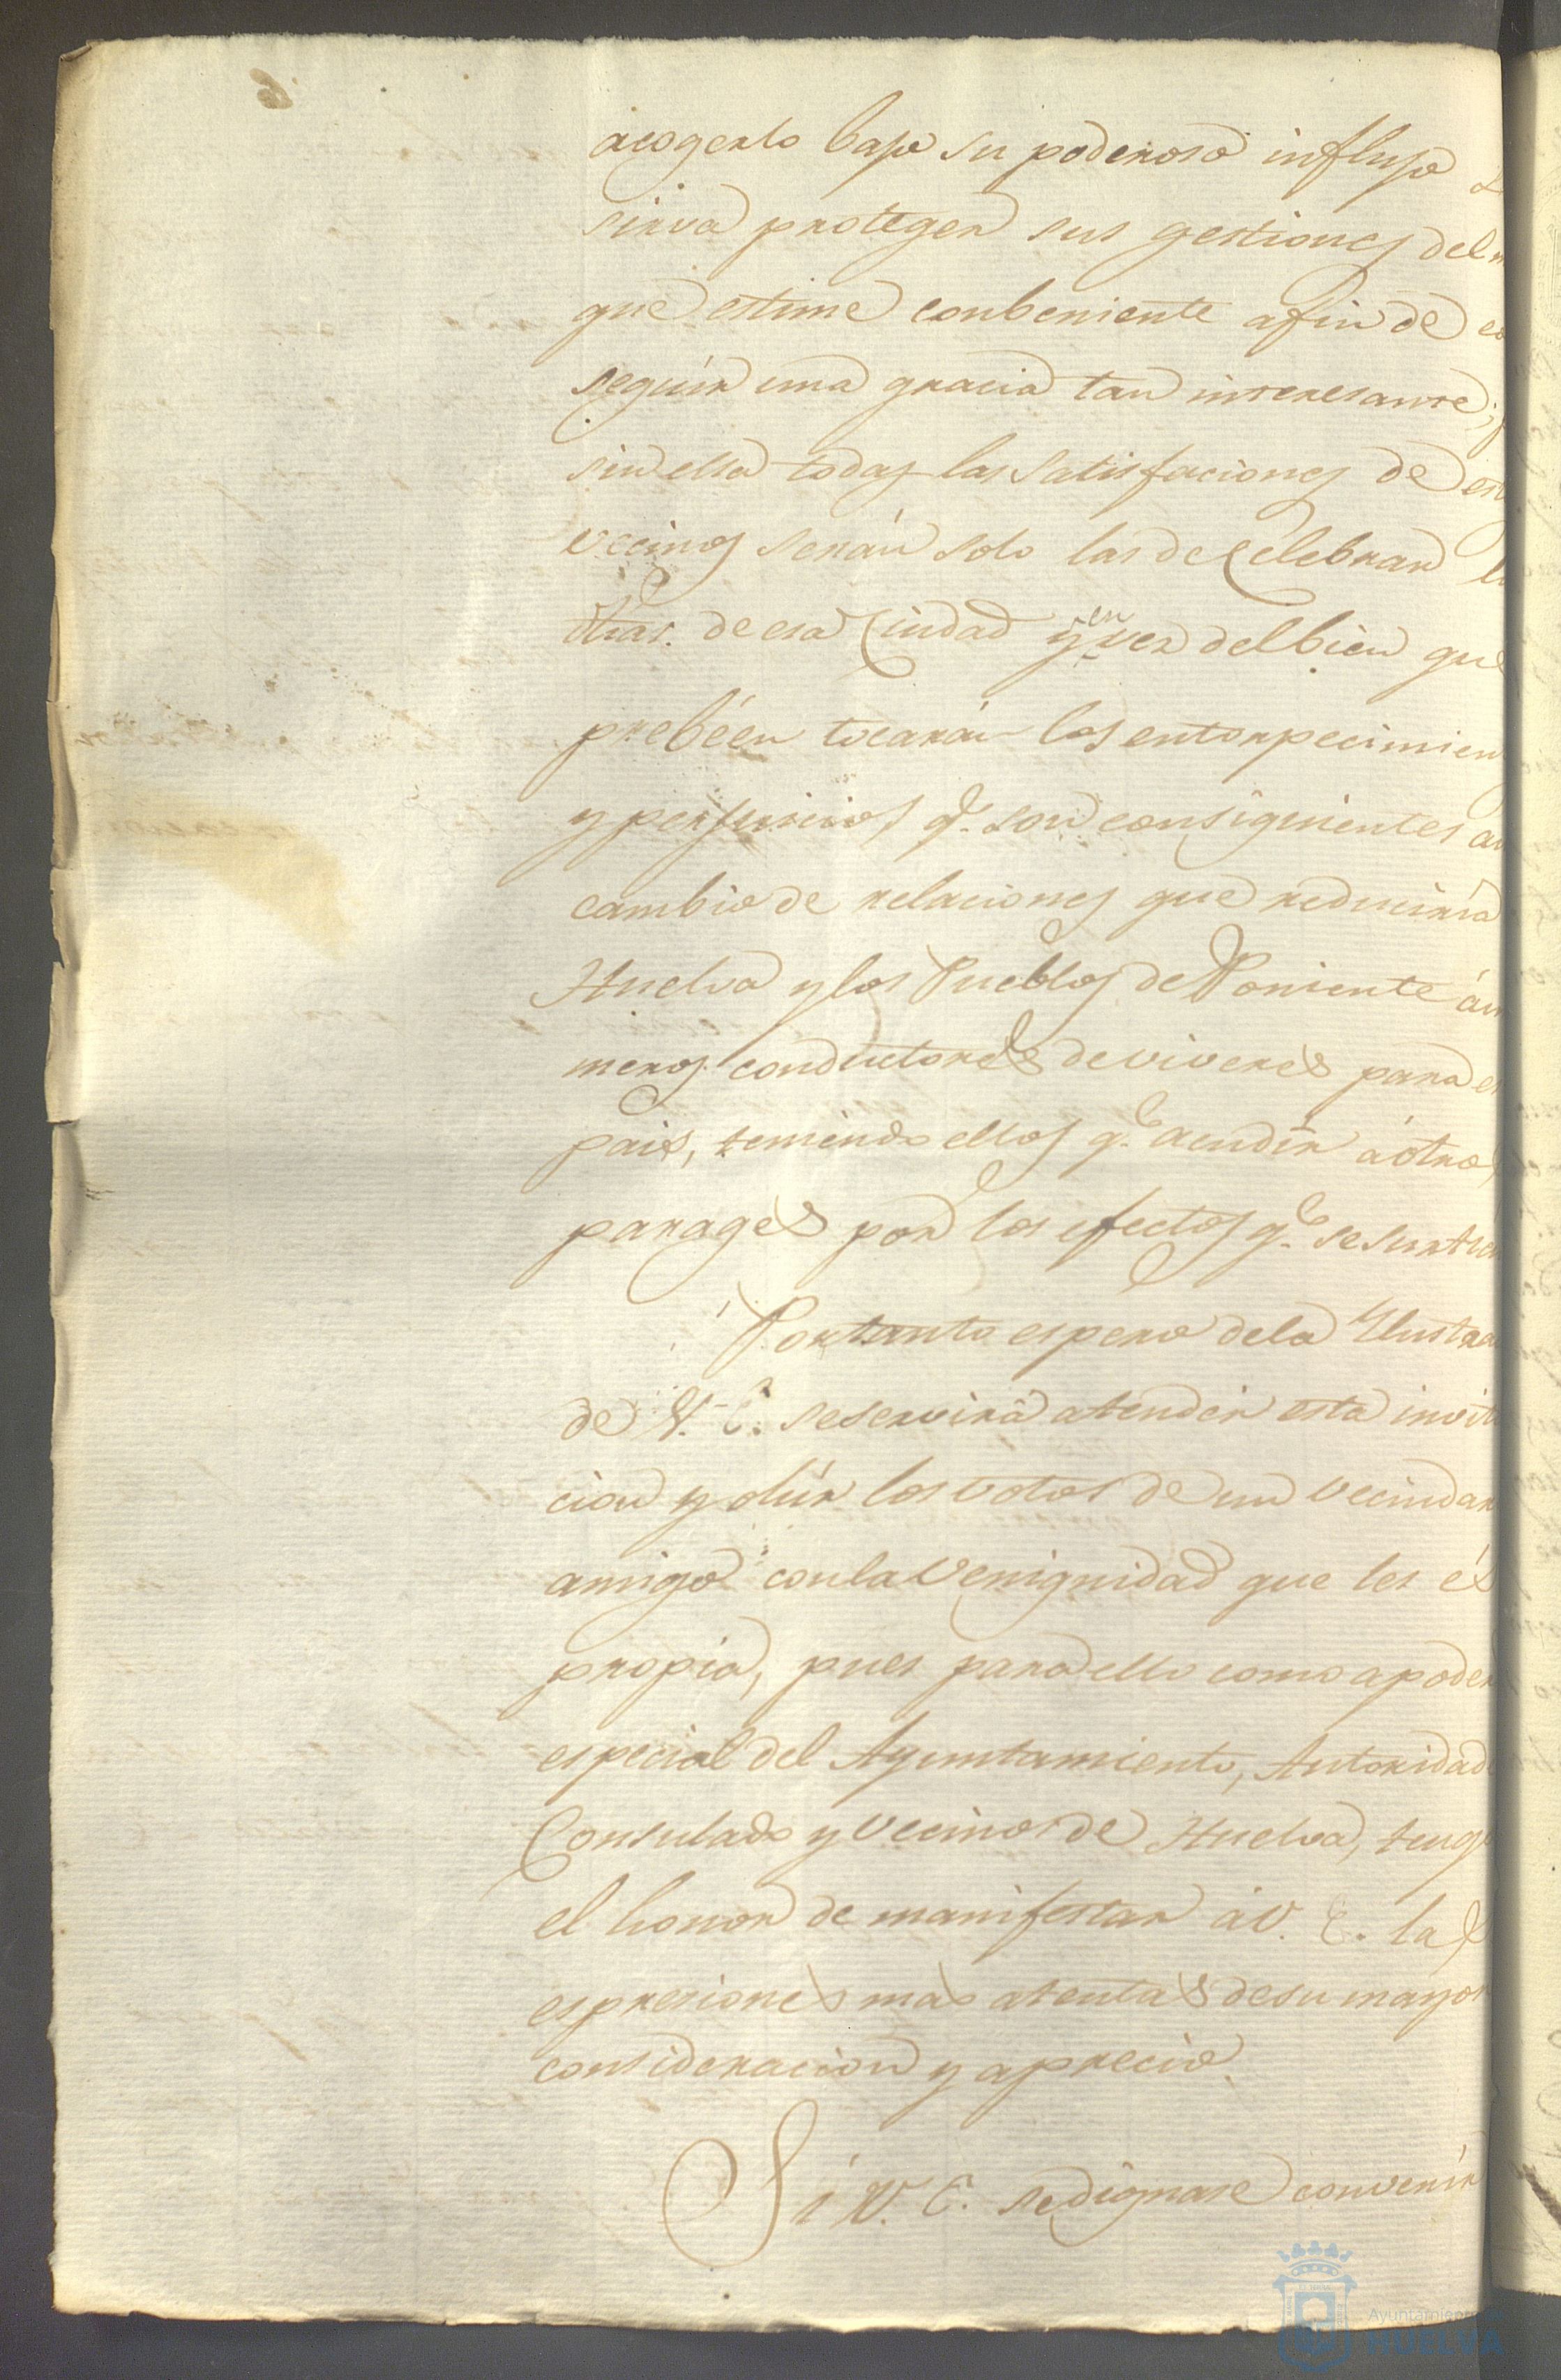 acogerlo bajo su poderoso influjo
sirva proteger sus gestiones del
que estime conbeniente afin de co
seguir una gracia tan interesante;
sin ella todas las satisfaciones de est
vecinos serán solo las de Celebrar
de esa Ciudad y en vez del bien que
prebéen tocarán los entorpecimien
y perjuicios q.e son consiguientes
cambio de relaciones que reduciria
Huelva y los Pueblos de Poniente
meros conductores de viveres para
pais, teniendo ellos q.e acudir á otro
parages por los efectos q.e se surten
Portanto espero dela Ylustra
de V. E. seservirá atender esta invit
cion y oúir los votos de un vecindar
amigo con la Venignidad que les és
propia, pues para ello como apoder
especial del Ayuntamiento, Autoridad
Consulado y vecinos de Huelva, teng
el honor de manifestar áV. E. las
espresiones mas atentas desu mayor
consideracion y aprecio.
Si V. E. se dignase convenir
Ayuntamien
HUELVA